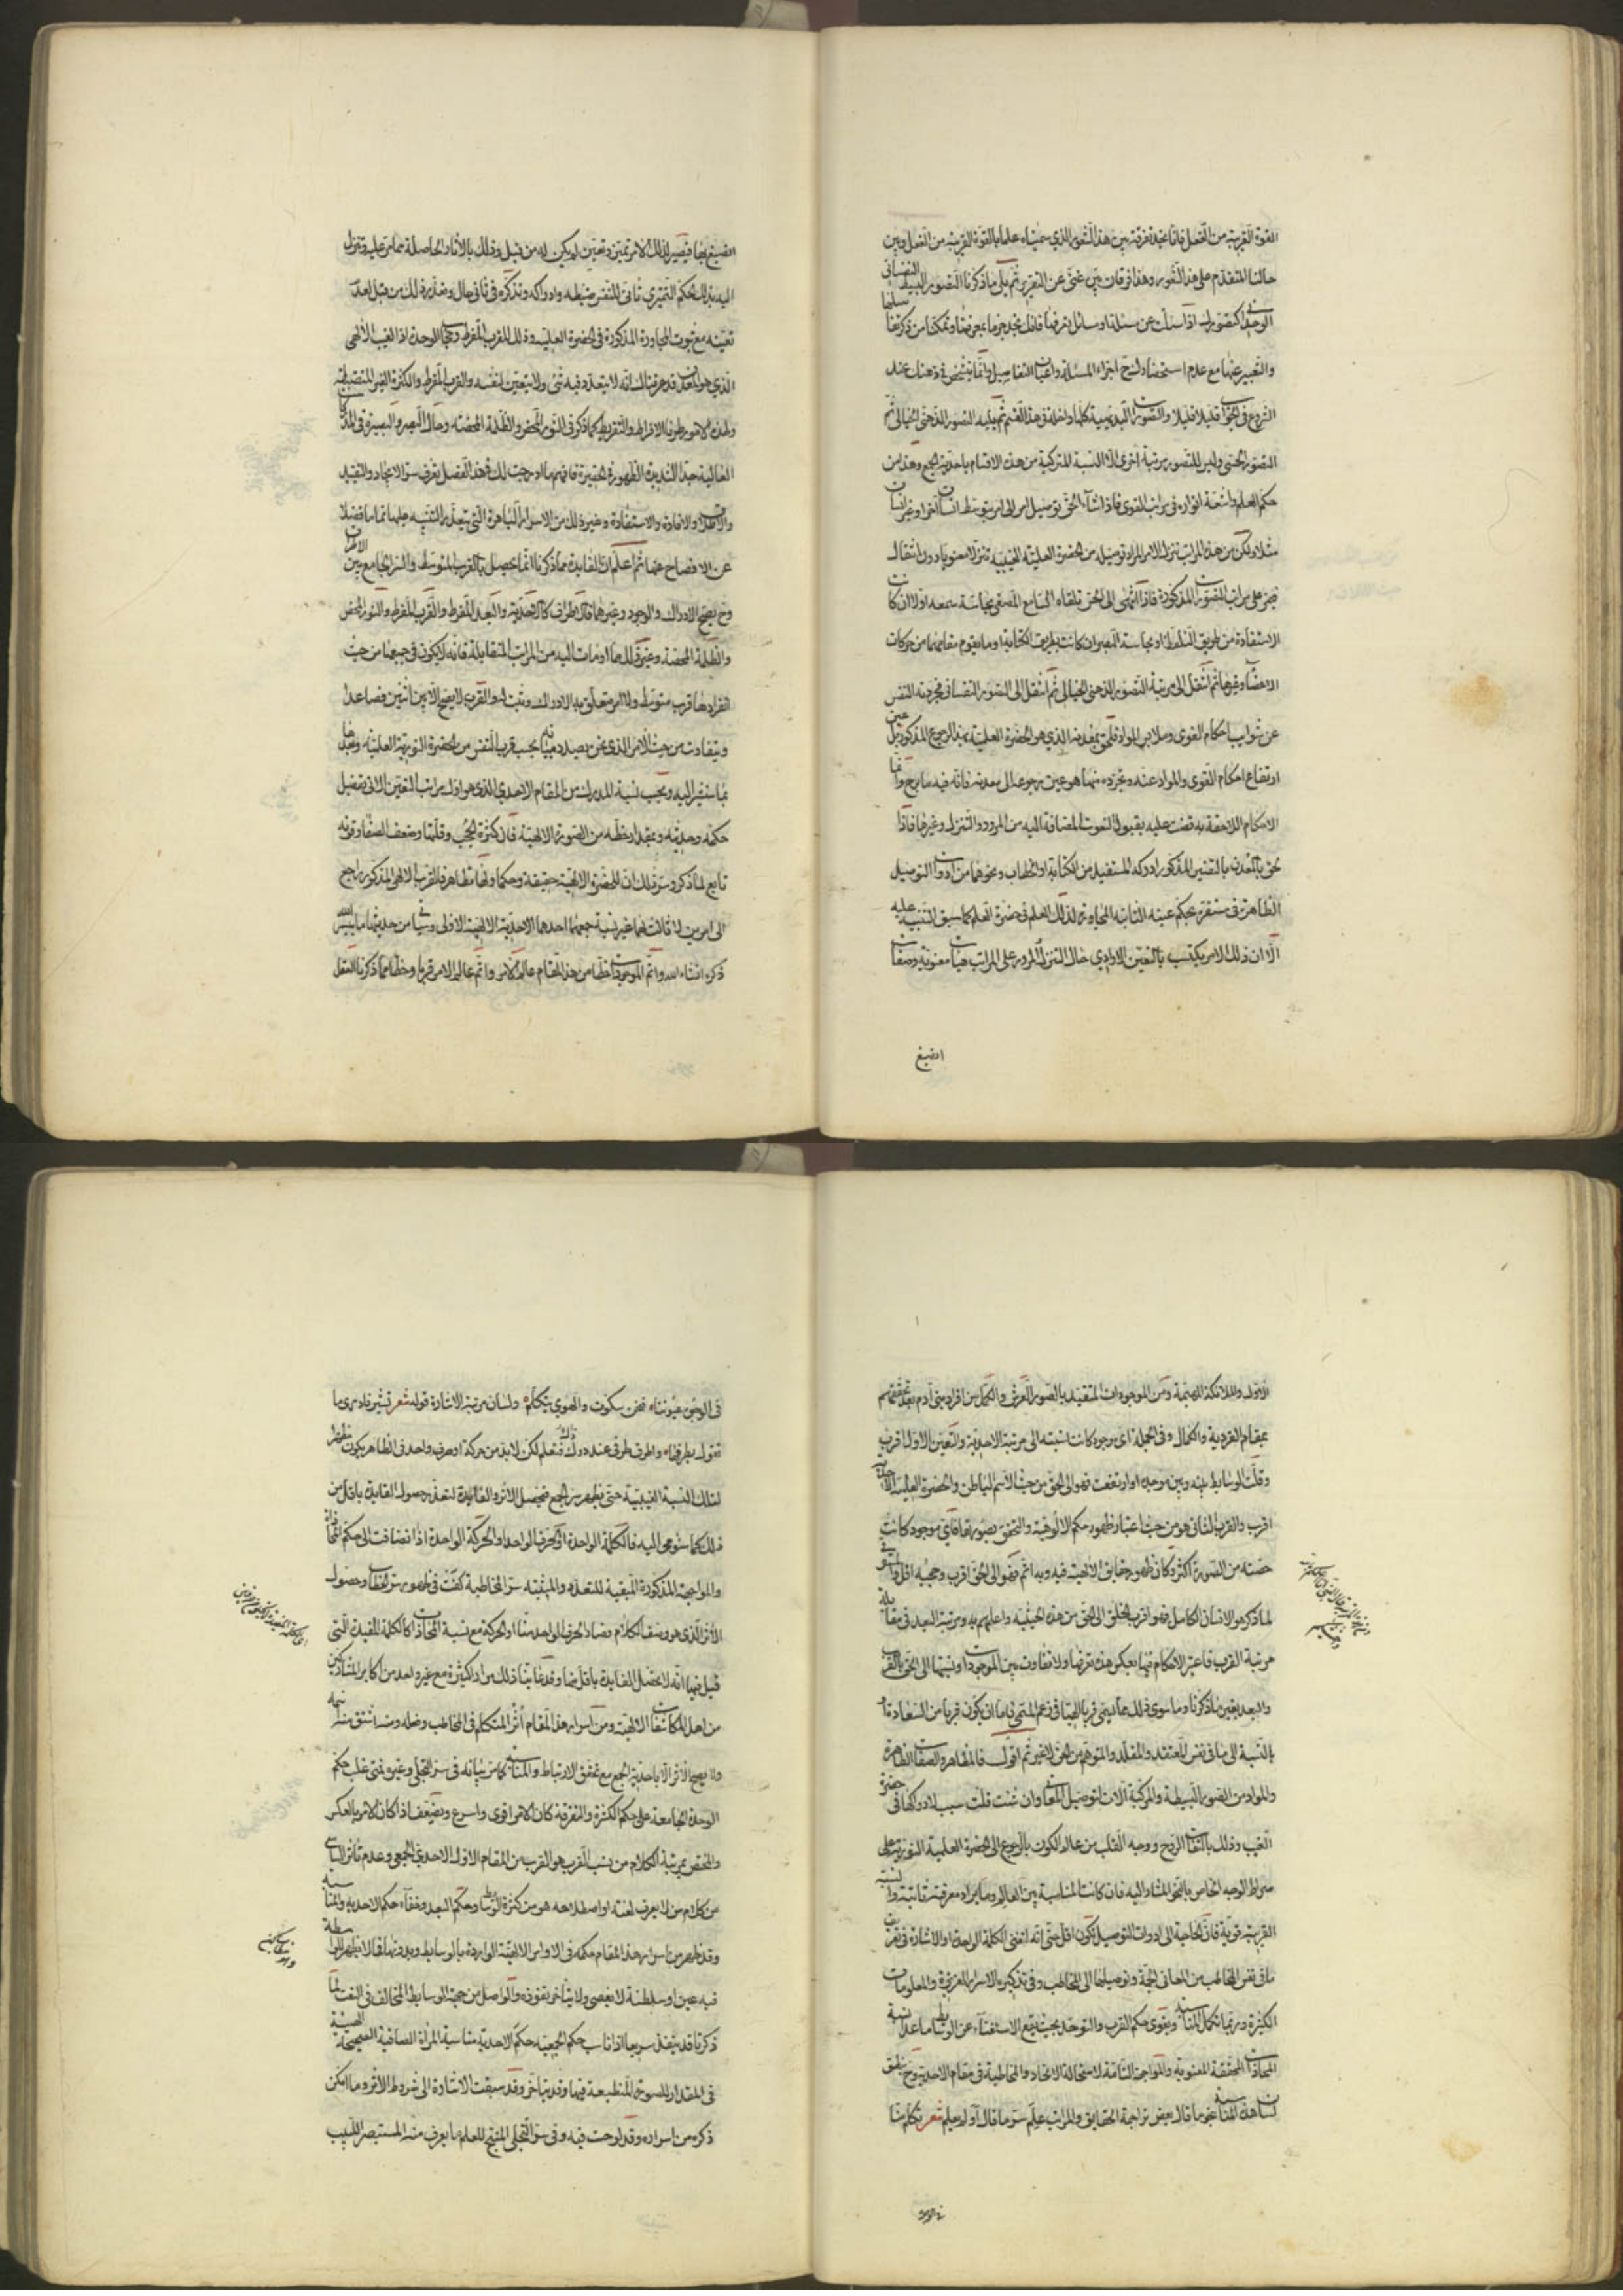 القوة القريبة من الفعل فانا نجد تفرقة بين هذا الشعور الذي سميناه علما بالقوة القريبة من الفعل وبين
حالنا المتقدم على هذا الشعور وهذا فرقان بين غنى عن التقرير ثم يلى ما ذكرنا التصور البسيط النفسانى
الوحدانى كتصورك اذا سئلت عن مسئلة او مسائل تعرفها فانك تجد جزما بمعرفتها وتمكنا من ذكرها
والتعبير عنها مع عدم استحضارك اجزاء المسئلة واعيان التفاصيل وانما تتشخص فى ذهنك عند
الشروع فى الجواب قليلا قليلا والتصورات البديهية كلها داخلة فى هذا القسم ثم يليه التصور الذهنى الخيالى ثم
التصور الحسى وليس للتصور مرتبة اخرى الا النسبة المتركبة من هذه الاقسام باحدية الجمع وهذا من
حكم العلم واشعة انواره فى مراتب القوى فاذا شاء الحق توصيل امر الى امر بتوسط انسان آخر او غير انسان
مثلا ولكن من هذه المراتب تنزل الامر المراد توصيله من الحضرة العلمية الغيبية تنزلا معنويا دون انتقال
فيمر على مراتب التصورات المذكورة فاذا انتهى الى الحس تلقاه السامع المصغى بحاسة سمعه اولا ان كانت
الاستفادة من طريق التلفظ او بحاسة البصر ان كانت بطريق الكتابة او ما يقوم مقامهما من حركات
الاعضاء وغيرها ثم انتقل الى مرتبة التصور الذهنى الخيالى ثم انتقل الى التصور النفسانى فجردته النفس
عن شوايب احكام القوى وملابس المواد فلحق بمعدنه الذي هو الحضرة العلمية بهذا الرجوع المذكور بل عين
ارتفاع احكام القوى والمواد عنه وتجرده منها هو عين رجوعه الى معدنه فانه فيه ما برح وانما
الاحكام اللاحقة به قضت عليه بقبول النعوت المضافة اليه من المرور والتنزل وغيرهما فاذا
لحق بالمعدن بالتفسير المذكور ادركه المستفيد من الكتابة او الخطاب ونحوهما من ادوات التوصيل
الظاهرة فى مستقره بحكم عينه الثابتة المجاورة لذلك العلم فى حضرة العلم كما سبق التنبيه عليه
الا ان ذلك الامر يكتسب بالتعين الارادى حال التنزل والمرور على المراتب هيئات معنوية وصفات
انصبغ
انصبغ بها فيصير لذلك الامر تميز وتعين لم يكن له من قبل وذلك بالاثار الحاصلة مما مر عليه وتنزل
اليه بذلك الحكم التميزى تأتى للنفس ضبطه وادراكه وتذكره فى ثانى حال وتعذر ذلك من قبل لعدم
تعينه مع ثبوت المجاورة المذكورة فى الحضرة العلمية وذلك للقرب المفرط وحجاب الوحدة اذ الغيب الالهى
الذي هو المعدن قد عرفناك انه لا يتعدد فيه شئ ولا يتعين لنفسه والقرب المفرط والكثرة الغير المنضبطة
ولهذه الامور طرفا الافراط والتفريط كما ذكر فى النور المحض والظلمة المحضة وحال البصر والبصيرة فى المدركات
العالية جدا الشديدة الظهور والحقيرة فافهم ما ادرجت لك فى هذا الفصل تعرف سر الايجاد والتقييد
والاطلاق والافادة والاستفادة وغير ذلك من الاسرار الباهرة التى يتعذر التنبيه عليها تماما فضلا
عن الافصاح عنها ثم اعلم ان الفايدة مما ذكرنا انما تحصل بالقرب المتوسط والسر الجامع بين الاطراف
وح يصح الادراك والوجود وغيرهما فالاطراف كالاحدية والبعد المفرط والقرب المفرط والنور المحض
والظلمة المحضة وغير ذلك مما اومأت اليه من المراتب المتقابلة فانه لا يكون فى جميعها من حيث
انفرادها قرب متوسط ولا امر متعلق به الادراك ويثبت له والقرب لا يصح الا بين اثنين فصاعدا
ويتفاوت من حيث الامر الذى نحن بصدد بيانه بحسب قرب النفس من الحضرة النورية العلمية وبعدها
بما سنشير اليه وبحسب نسبة المدرك من المقام الاحدي الذى هو اول مراتب التعين الاتى تفصيل
حكمه وحديثه وبمقدار حظه من الصورة الالهية فان كثرة الحجب وقلتها وضعف الصفا وقوته
تابع لما ذكر وسر ذلك ان للحضرة الالهية حقيقة وحكما ولها مظاهر فالقرب الالهى المذكور راجع
الى امرين لا ثالث لهما غير نسبة جمعهما احدهما الاحدية الالهية الاولى وسيأتى من حديثها ما ييسر الله
ذكره ان شاء الله واتم الموجودات حظا من هذا المقام عالم الامر واتم عالم الامر قربا وحظا مما ذكرنا العقل
الاول والملائكة المهيمة ومن الموجودات المتقيد بالصور العرش والكمل من افراد بنى آدم بعد تحققهم
بمقام الفردية والكمال وفى الجملة اى موجود كانت نسبته الى مرتبة الاحدية والتعين الاول اقرب
وقلت الوسايط بينه وبين موجده او ارتفعت فهو الى الحق من حيث الاسم الباطن والحضرة العلمية الاحدية
اقرب والقرب الثانى هو من حيث اعتبار ظهور حكم الالوهية والتحقق بصورتها فاى موجود كانت
حصته من الصورة اكثر وكان ظهور حقايق الالهية فيه وبه اتم فهو الى الحق اقرب وحجبه اقل والمستوفى
لما ذكر هو الانسان الكامل فهو اقرب الخلق الى الحق من هذه الحيثية واعلمهم به ومرتبة البعد فى مقابلة
مرتبة القرب فاعتبر الاحكام فيها بعكس هذه تعرفها ولا تفاوت بين الموجودات ونسبتها الى الحق بالقرب
والبعد بغير ما ذكرنا وما سوى ذلك مما يسمى قربا الهيا فى زعم المسمى فاما ان يكون قربا من السعادة او
بالنسبة الى ما فى نفس المعتقد والمقلد والمتوهم من الحق لا غير ثم اقول فالمظاهر والصفات الظاهرة
والمواد من الصور البسيطة والمركبة آلات لتوصيل المعانى وان شئت قلت سبب لادراكها فى حضرة
الغيب وذلك بالتفات الروح ووجه القلب من عالم الكون بالرجوع الى الحضرة العلمية النورية على
صراط الوجه الخاص بالنحو المشار اليه فان كانت المناسبة بين العالم وما يراد معرفته ثابتة والنسبة
القريبة قوية فان الحاجة الى ادوات التوصيل تكون اقل حتى انه لتغنى الكلمة الواحدة او الاشارة فى تعريف
ما فى نفس المخاطب من المعانى الجمة وتوصيلها الى المخاطب وفى تذكيره الاسرار العزيزة والمعلومات
الكثيرة وربما تكمل المناسبة ويقوى حكم القرب والتوحد بحيث يقع الاستغناء عن الوسايط ما عدا نسبة
المحاذاة المحققة المعنوية والمواجهة التامة لاستحالة الاتحاد والمخاطبة فى مقام الاحدية وح ينطق
لسان هذه المناسبة بنحو ما قال بعض تراجمة الحقايق والمراتب علم سر ما قال او لم يعلم شعر تكلم منا
فى الوجوه عيوننا * فنحن سكوت والهوى يتكلم * ولسان مرتبة الاشارة قوله شعر تشير فادرى ما
تقول بطرفها * واطرق طرفى عند ذاك فتعلم لكن لابد من حركة او حرف واحد فى الظاهر يكون مظهرا
لتلك النسبة الغيبية حتى يظهر سر الجمع فيحصل الاثر والفايدة لتعذر حصول الفايدة باقل من
ذلك كما سنومى اليه فالكلمة الواحدة او الحرف الواحد او الحركة الواحدة اذا انضافت الى حكم المحاذاة
والمواجهة المذكورة المبقية للتعدد والمثبتة سر المخاطبة كفت فى ظهور سر الخطاب وحصول
الاثر الذى هو وصف الكلام وصار الحرف الواحد هنا او الحركة مع نسبة المحاذاة كالكلمة المفيدة التى
قيل فيها انه لا تحصل الفايدة باقل منها وقد عاينا ذلك مرارا كثيرة مع غير واحد من اكابر المشاركين
من اهل المكاشفات الالهية ومن اسرار هذا المقام أثر المتكلم فى المخاطب وفعله ومنه اشتق منه
ولا يصح الاثر الا باحدية الجمع مع تحقق الارتباط والمناسبة كما مر بيانه فى سر التجلى وغيره فمتى غلب حكم
الوحدة الجامعة على حكم الكثرة والتفرقة كان الاثر اقوى واسرع ويضعف اذا كان الامر بالعكس
والمختص بمرتبة الكلام من نسب القرب هو القرب من المقام الاول الاحدي الجمعى وعدم تأثر السامع
من كلام من لا يعرف لغته او اصطلاحه هو من كثرة الوسايط وحكم البعد وخفاء حكم الاحدية والمناسبة
وقد ظهر من اسرار هذا المقام حكمه فى الاوامر الالهية الواردة بالوسايط وبدونها فما لا يظهر للواسطة
فيه عين او سلطنة لا يعصى ولا يتأخر نفوذه والواصل من جهة الوسايط المخالف فى النعت لما
ذكرنا قد ينفذ سريعا اذا ناسب حكم الجمعية حكم الاحدية مناسبة المرآة الصافية الصحيحة الهيئة
فى المقدار للصورة المنطبعة فيها وقد يتأخر وقد سبقت الاشارة الى شروط الاثر وما امكن
ذكره من اسراره وقد لوحت فيه وفى سر التجلى المنتج للعلم ما يعرف منه المستبصر اللبيب